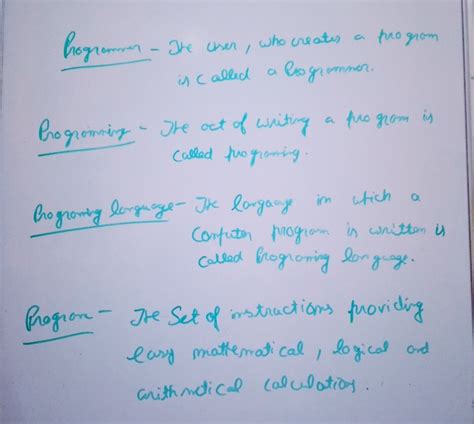 Programmer - The user, who creates a program
is called a Programmer.
Programming - The act of writing a program is
called programing.
Programing language - The language in which a
computer program is written is
called Programing language.
Program - The Set of instructions providing
easy mathematical, logical and
arithmetical calculations.